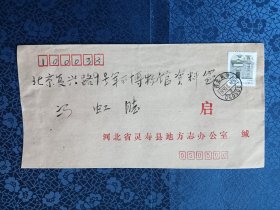 100038
北京复兴路9号军事博物馆资料室
冯 虹 启
河北省灵寿县地方志办公室 缄